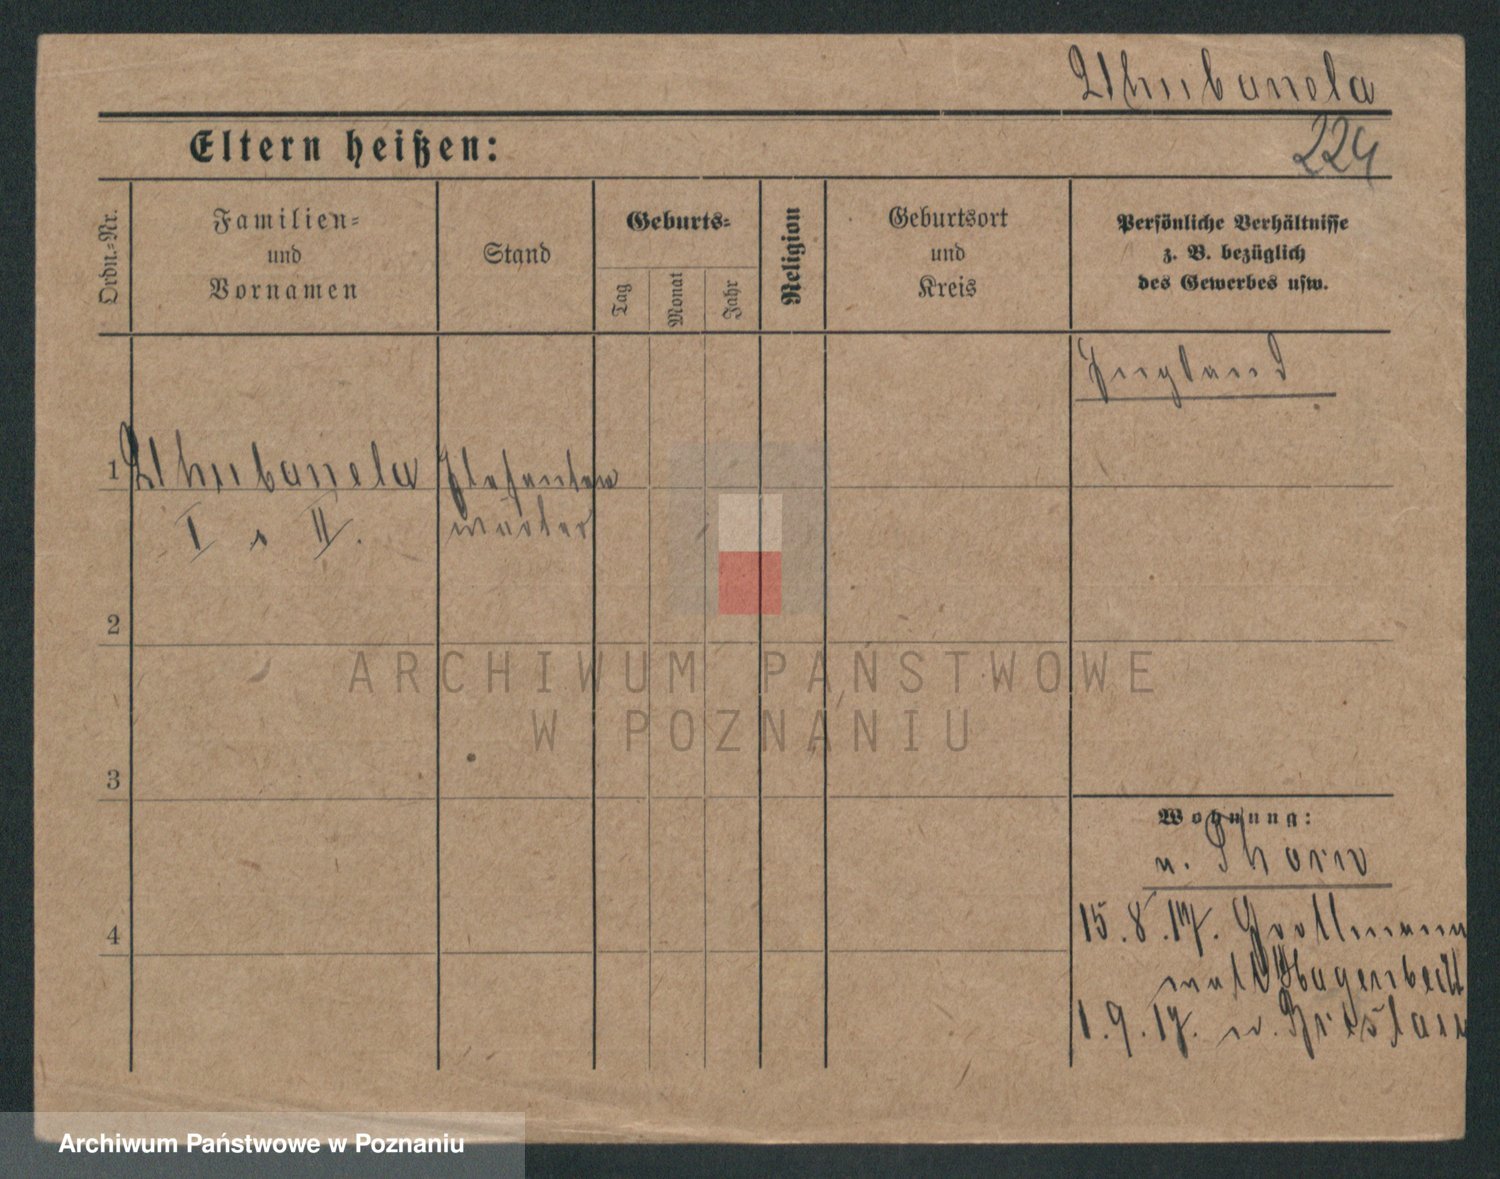 Uhubanela
224
Eltern heißen:
Ordn.-Nr.
Familien-
und
Vornamen
Stand
Geburts-
Tag
Monat
Jahr
Religion
Geburtsort
und
Kreis
Persönliche Verhältnisse
z. B. bezüglich
des Gewerbes usw.
England
1
Uhubanela
I u II.
Elefanten
wärter
2
3
4
Wohnung:
n. Thorn
15.8.17. Grollmann
Hagenbeck
1.9.17. n. Breslau
ARCHIWUM PAŃSTWOWE
W POZNANIU
Archiwum Państwowe w Poznaniu